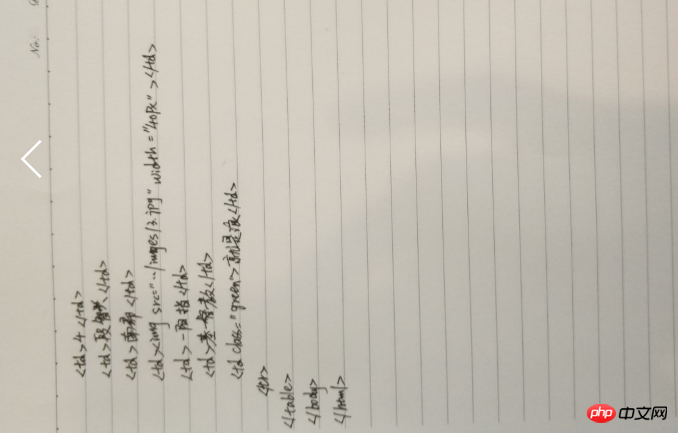 No:
<td>4</td>
<td>段智兴</td>
<td>南帝</td>
<td><img src="../images/3.jpg" width="40px"></td>
<td>一阳指</td>
<td></td>
<td class="green"></td>
<tr>
</table>
</body>
</html>
php 中文网